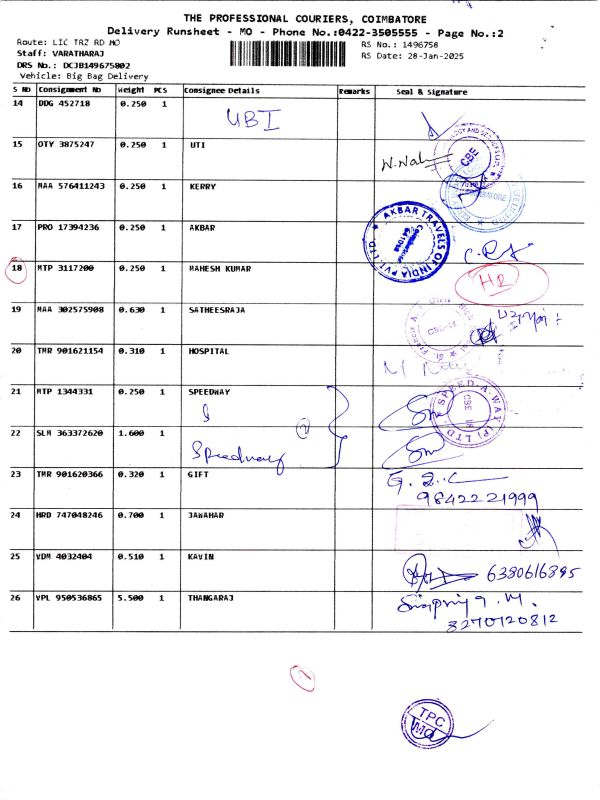 THE PROFESSIONAL COURIERS, COIMBATORE
Delivery Runsheet - MO - Phone No.:0422-3505555 - Page No.:2
Route: LIC TRZ RD MO
RS No.: 1496758
Staff: VARATHARAJ
RS Date: 28-Jan-2025
DRS No.: DCJB149675802
Vehicle: Big Bag Delivery
S No Consignment No Weight PCS Consignee Details Remarks Seal & Signature
14 DDG 452718 0.250 1 UBI
15 OTY 3875247 0.250 1 UTI
CBE
16 MAA 576411243 0.250 1 KERRY
17 PRO 17394236 0.250 1 AKBAR
AKBAR TRAVELS OF INDIA PVT. LTD.
18 MTP 3117200 0.250 1 MAHESH KUMAR HR
19 MAA 302575908 0.630 1 SATHEESRAJA
20 TMR 901621154 0.310 1 HOSPITAL
21 MTP 1344331 0.250 1 SPEEDWAY
S
SPEED-A-WAY (P) LTD.
CBE
22 SLM 363372620 1.600 1 Speedway
2
23 TMR 901620366 0.320 1 GIFT
9842221999
24 HRD 747048246 0.700 1 JAWAHAR
25 VDM 4032404 0.510 1 KAVIN
6380616895
26 VPL 950536865 5.500 1 THANGARAJ
8270120812
TPC
MO